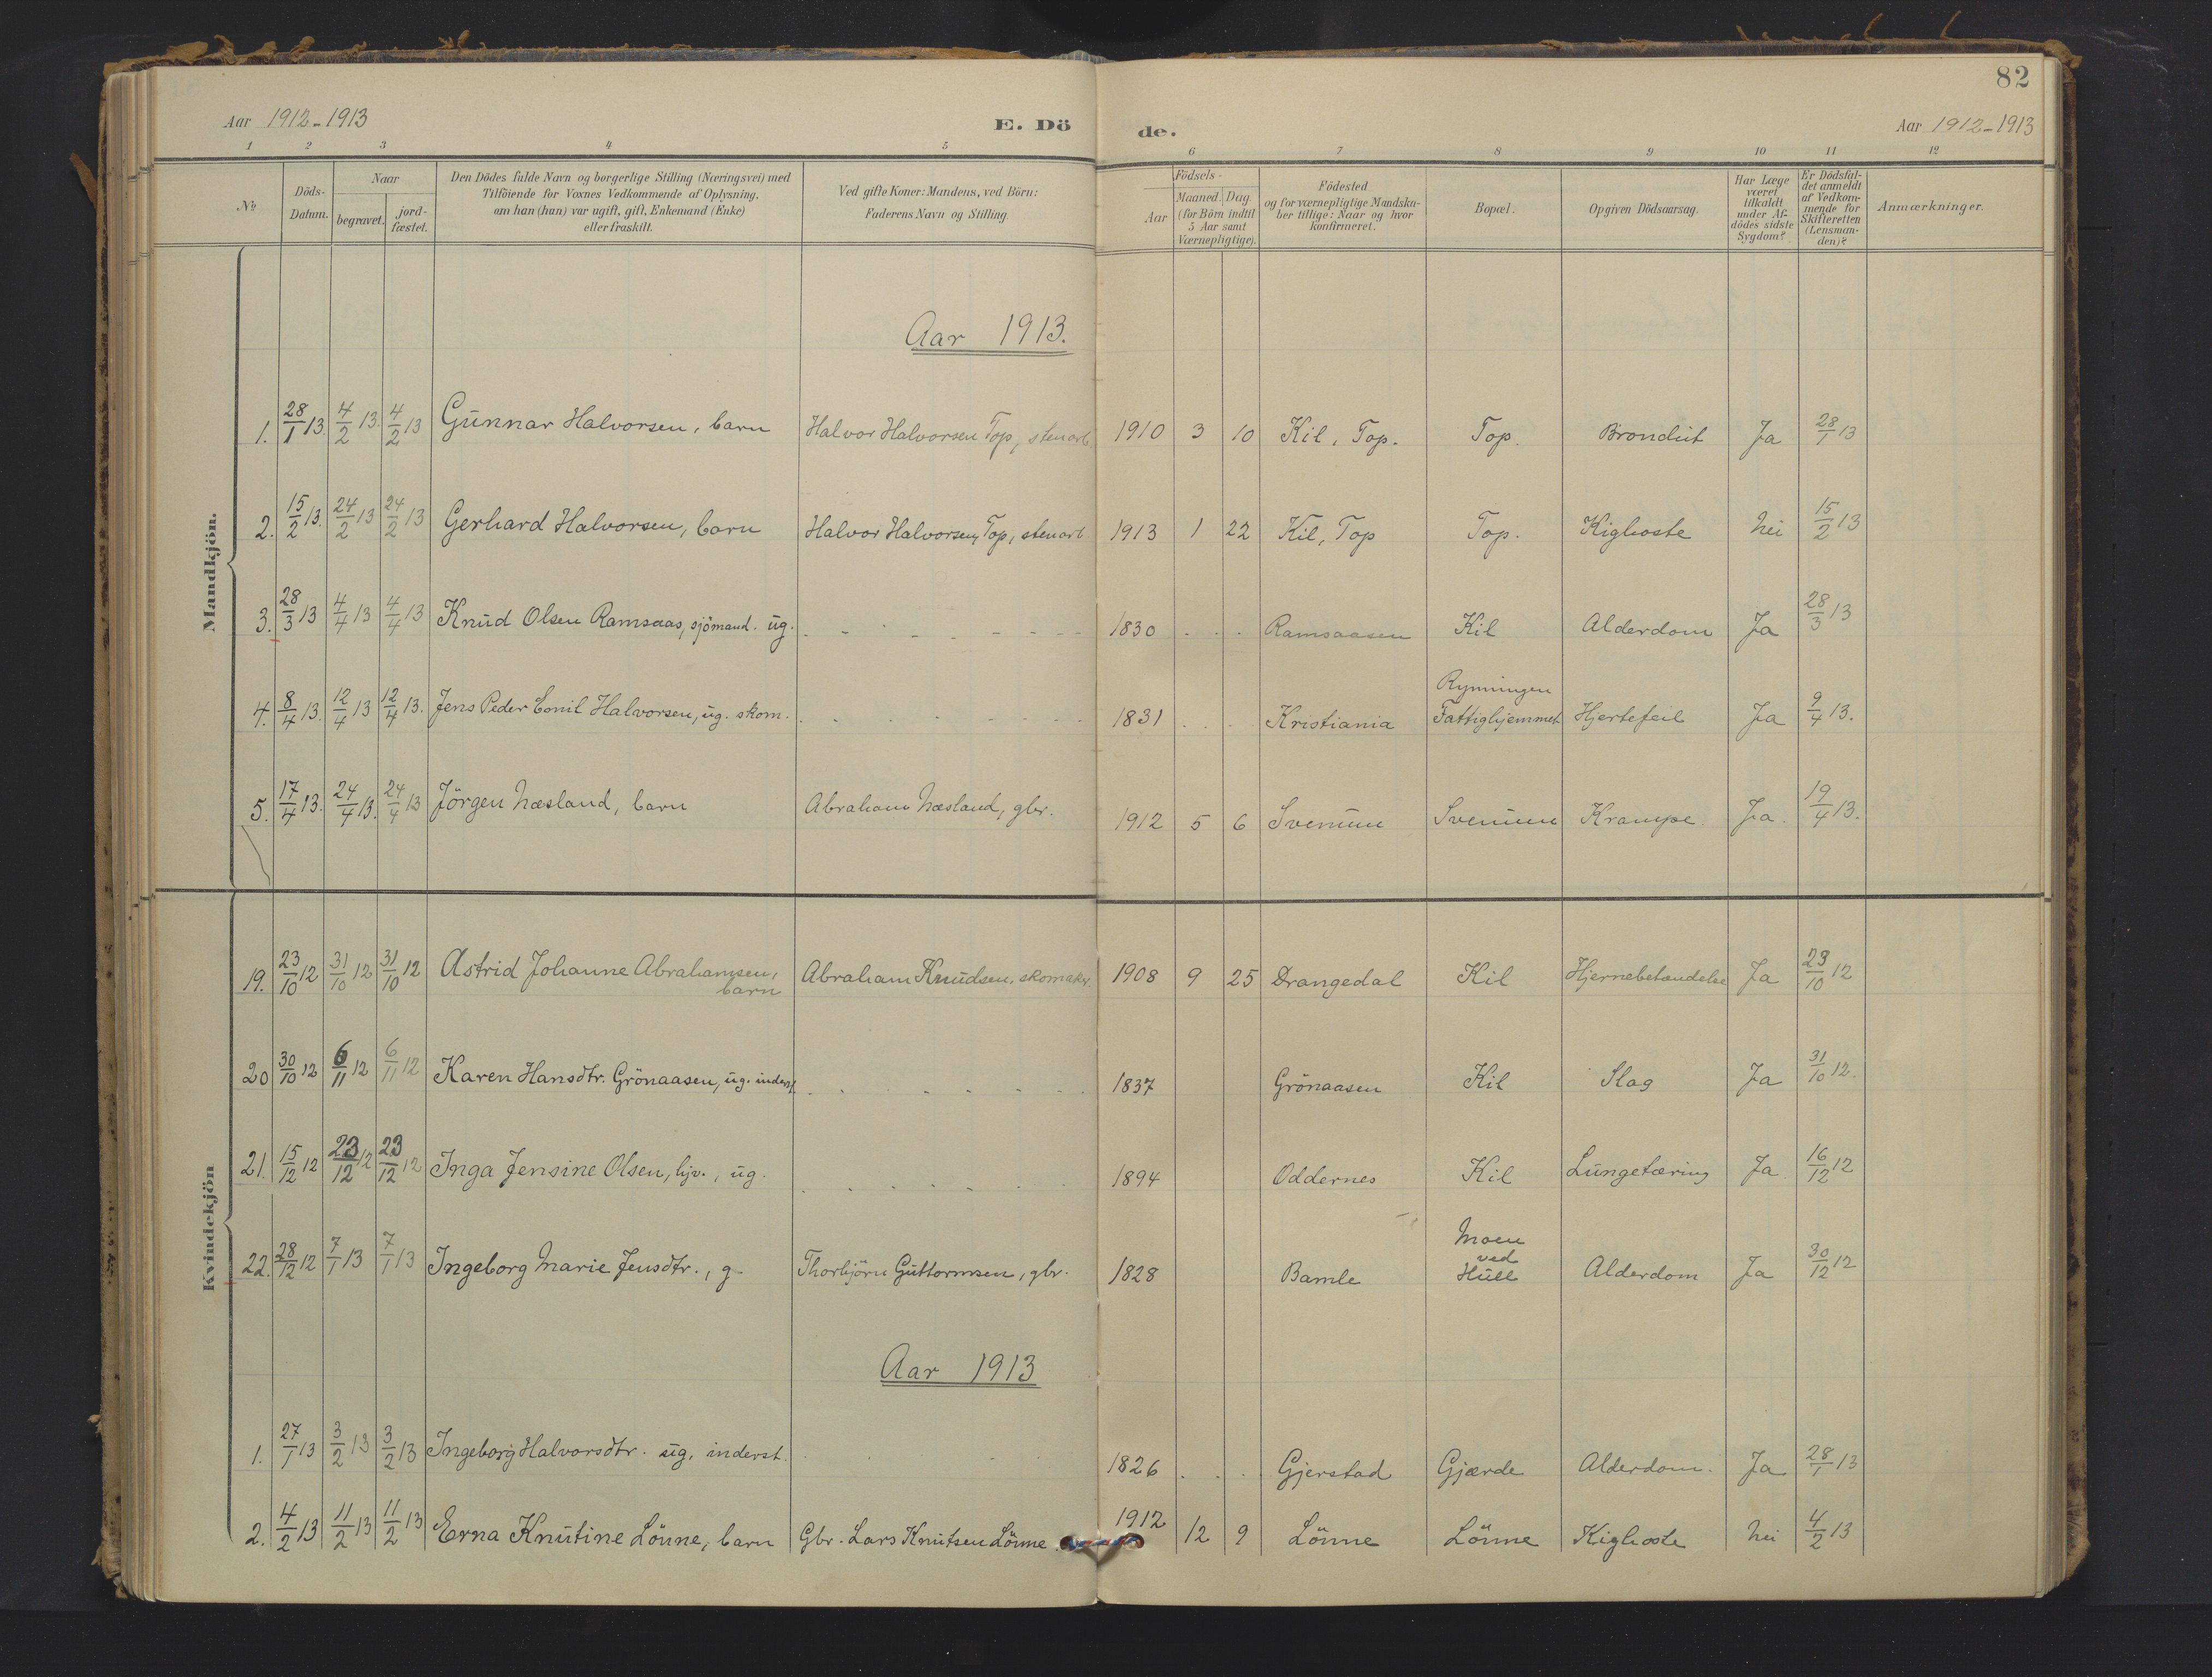 82
Aar 1912-1913 E. Dö de. Aar 1912-1913
1 2 3 4 5 6 7 8 9 10 11 12
№ Döds-Datum. Naar begravet. jord-fæstet. Den Dödes fulde Navn og borgerlige Stilling (Næringsvei) med Tilföiende for Voxnes Vedkommende af Oplysning, om han (hun) var ugift, gift, Enkemand (Enke) eller fraskilt. Ved gifte Koner: Mandens, ved Börn: Faderens Navn og Stilling. Födsels- Aar Maaned. Dag (for Börn indtil 5 Aar samt Værnepligtige). Födested og for værnepligtige Mandskaber tillige: Naar og hvor konfirmeret. Bopæl. Opgiven Dödsaarsag. Har Læge været tilkaldt under Afdödes sidste Sygdom? Er Dödsfaldet anmeldt af Vedkommende for Skifteretten (Lensmanden)? Anmærkninger.
Mandkjön.
Aar 1913.
1. 28/1 13. 4/2 13. 4/2 13 Gunnar Halvorsen, barn Halvor Halvorsen Top, stenarb. 1910 3 10 Kil, Top. Top. Ja 28/1 13
2. 15/2 13. 24/2 13 24/2 13 Gerhard Halvorsen, barn Halvor Halvorsen, Top, stenarb 1913 1 22 Kil, Top Top. Kighoste Nei 15/2 13
3. 28/3 13 4/4 13 4/4 13 Knud Olsen Ramsaas, sjömand. ug. 1830 Ramsaasen Kil Alderdom Ja 28/3 13
Rymningen
4. 8/4 13. 12/4 13 12/4 13. Jens Peder Emil Halvorsen, ug. skom. 1831 Kristiania Fattighjemmet Hjertefeil Ja 9/4 13.
5. 17/4 13. 24/4 13. 24/4 13 Jörgen Næsland, barn Abraham Næsland, gbr. 1912 5 6 Svenum Svenum Krampe. Ja. 19/4 13.
Kvindekjön
19. 23/10 12 31/10 12 31/10 12 Astrid Johanne Abrahamsen, barn Abraham Knudsen, skomaker. 1908 9 25 Drangedal Kil Hjernebetændelse Ja 23/10 12
20 30/10 12 6/11 12 6/11 12 Karen Hansdtr. Grönaasen, ug. inderst. 1837 Grönaasen Kil Slag Ja 31/10 12.
21. 15/12 12 23/12 12 23/12 12 Inga Jensine Olsen, hjv., ug. 1894 Oddernes Kil Lungetæring Ja 16/12 12
22. 28/12 12 7/1 13 7/1 13 Ingeborg Marie Jensdtr., g. Thorbjörn Guttormsen, gbr. 1828 Bamle Moen ved Hull Alderdom Ja 30/12 12
Aar 1913
1. 27/1 13 3/2 13 3/2 13 Ingeborg Halvorsdtr. ug. inderst. 1826 Gjerstad Gjærde Alderdom. Ja 28/1 13
2. 4/2 13 11/2 13 11/2 13 Erna Knutine Lönne, barn Gbr. Lars Knutsen Lönne. 1912 12 9 Lönne Lönne Kighoste Nei 4/2 13